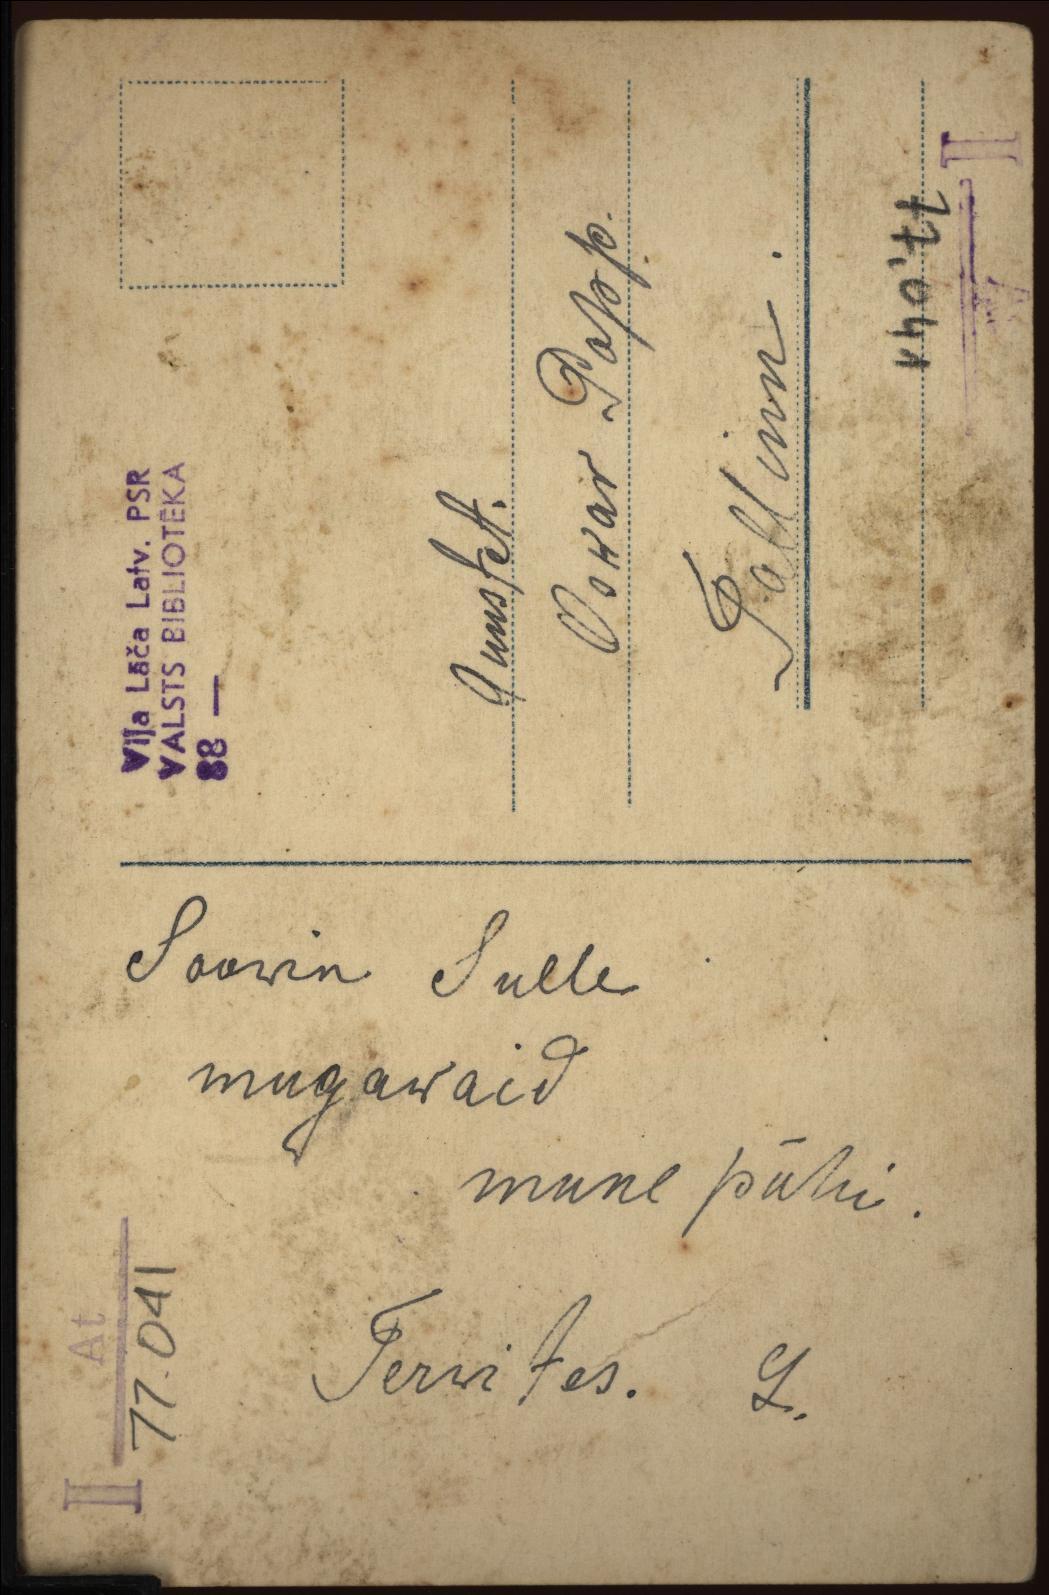 Viļa Lāča Latv. PSR
VALSTS BIBLIOTĒKA
88 —
Oskar Popp.
Tallinn.
II
77.041
Soowin Sulle
mugawaid
mune pühi.
Terwites. L.
II At
77.041